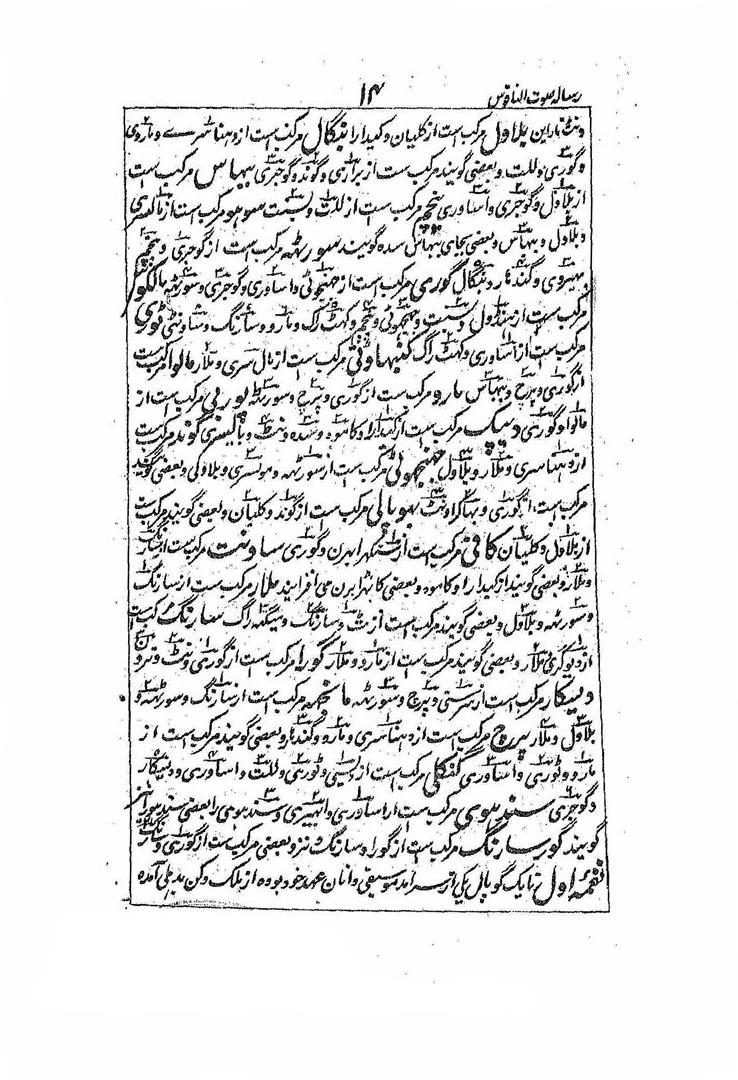 رساله صوت الناقوس ۱۴
ونٹ نارابن بلاول مرکب است از کلیان و کیدارا بنگال مرکب است از دهناشری و ماروی
و گوری و للت و بعضی گویند مرکب ست از براری و گوند و گوجری بیهاس مرکب است
از بلاول و گوجری و اساوری پنچم مرکب ست از للت و بسنت سوهو مرکب است از مالسری
و بلاول و بهاس و بعضی بجای بیهاس سده گویند سورٹهه مرکب است از گوجری و پنچم
و بهیروی و گندهار و بنگال گوری مرکب است از جنجوٹی و اساوری و گوجری و سورٹهه مالکوس
مرکب ست از هنڈول و بسنت و پنچم و کهٹ راگ و مارو و سارنگ و ساونٹی ٹوڑی
مرکب ست از اساوری و کهٹ راگ مرکب ست از مال سری و ملار مالوا مرکب ست
از گوری و پرج و بیهاس مارو مرکب ست از گوری و پرج و سورٹهه پوربی مرکب ست از
مالوا و گوری دیپک مرکب ست از کیدارا و کامود و سده و نٹ و باگیسری گوند مرکب ست
از دهناسری و ملار و بلاول جنجوٹی مرکب ست از سورٹهه و بلاولی و بعضی گویند
مرکب ست از گوری و بهاگرا و نٹ بهوپالی مرکب ست از گوند و کلیان و بعضی گویند مرکب ست
از بلاول و کلیان کافی مرکب ست از و گوری ساونت مرکب ست از سارنگ
و ملار و بعضی گویند از کیدارا و کامود و بعضی کانهڑا برن می افزایند ملار مرکب ست از سارنگ
و سورٹهه و بلاول و بعضی گویند مرکب ست از نٹ و سارنگ و میگهه راگ سارنگ مرکب ست
از دیوگری و ملار و بعضی گویند مرکب ست از مارو و ملار گورا مرکب ست از گوری و نٹ و
دیسکار مرکب ست از سرستی و پرج و سورٹهه مرکب ست از سارنگ و سورٹهه و
بلاول و ملار پرج مرکب ست از دهناسری و مارو و گندهار و بعضی گویند مرکب ست از
مارو و ٹوری و اساوری گنکلی مرکب ست از دیسی و ٹوری و للت و اساوری و دیسکار
و گوجری سندهوی مرکب ست از اساوری و اهیری و سندهوی را بعضی سندهورا نیز
گویند گور سارنگ مرکب ست از گورا و سارنگ و نزد بعضی مرکب ست از گوری و سارنگ
نغمهٔ اول نایک گوپال یکی از سرآمد موسیقی دانان عهد خود بوده از ملک دکن بدهلی آمده